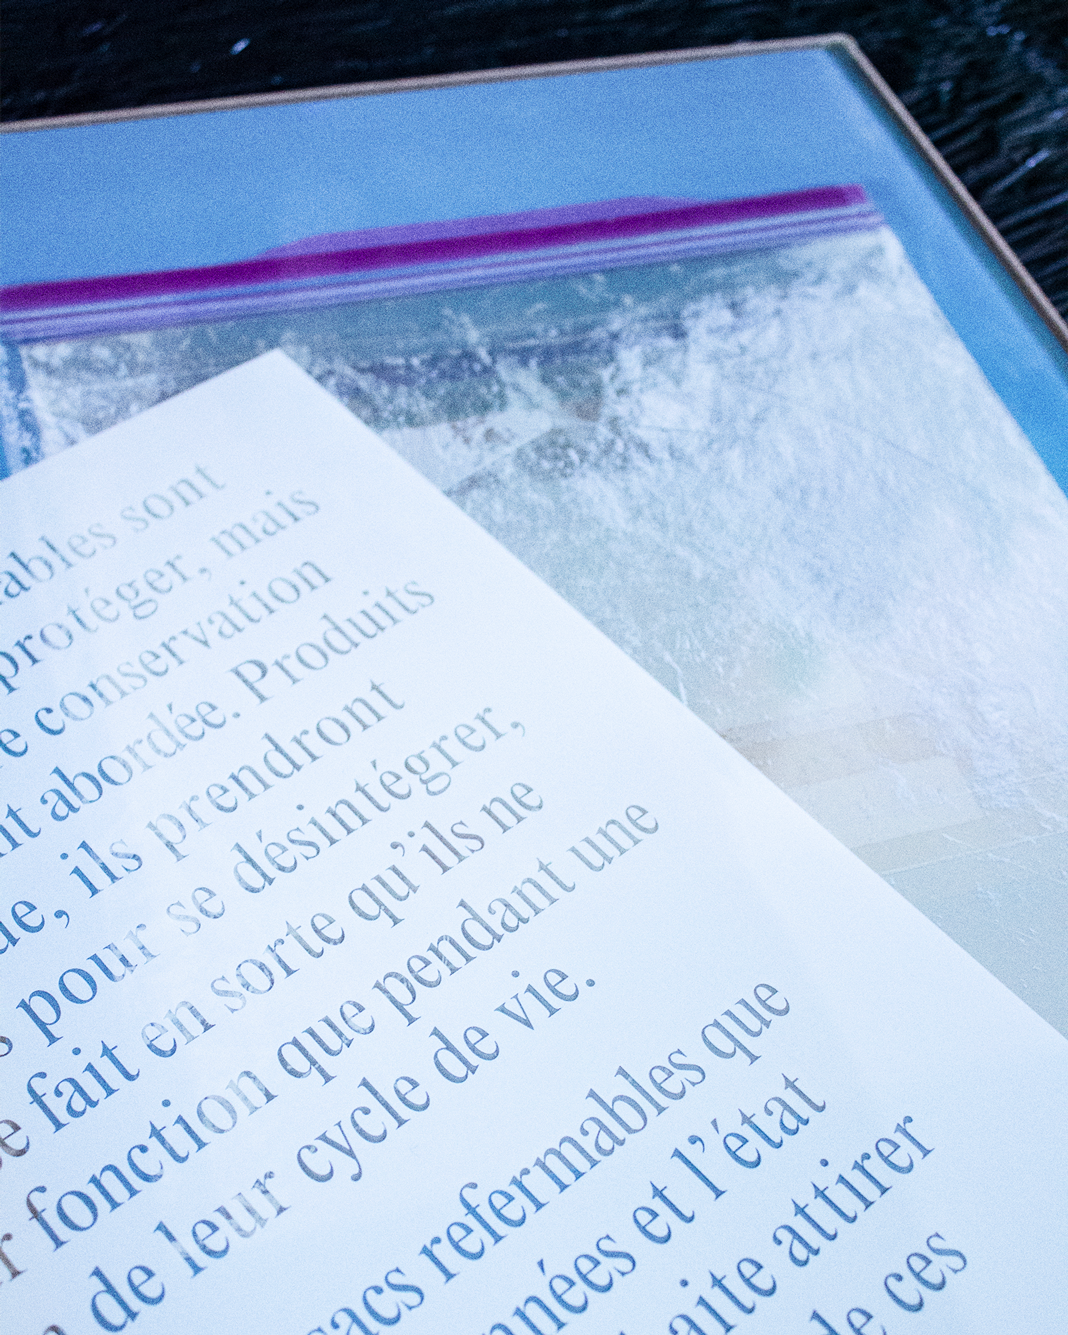 sont
protéger, mais
conservation
abordée. Produits
ils prendront
pour se désintégrer,
fait en sorte qu'ils ne
fonction que pendant une
de leur cycle de vie.
sacs refermables que
et l'état
attirer
de ces